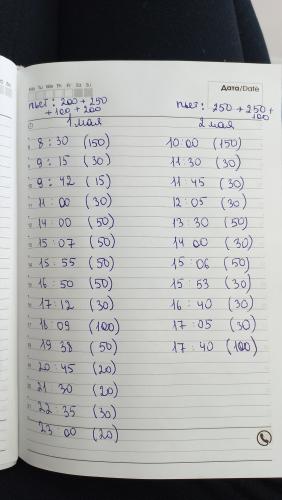 Дата/Date
пьет: 200 + 250
+ 100 + 200
1 мая
8:30 (150)
9:15 (30)
9:42 (15)
11:00 (30)
14:00 (50)
15:07 (50)
15:55 (50)
16:50 (50)
17:12 (30)
18:09 (100)
19 38 (50)
20:45 (20)
21 30 (20)
22:35 (30)
23 00 (20)
пьет: 250 + 250 +
100
2 мая
10:00 (150)
11:30 (30)
11:45 (30)
12:05 (30)
13:30 (50)
14 00 (30)
15:06 (50)
15:53 (30)
16:40 (30)
17:05 (30)
17:40 (100)